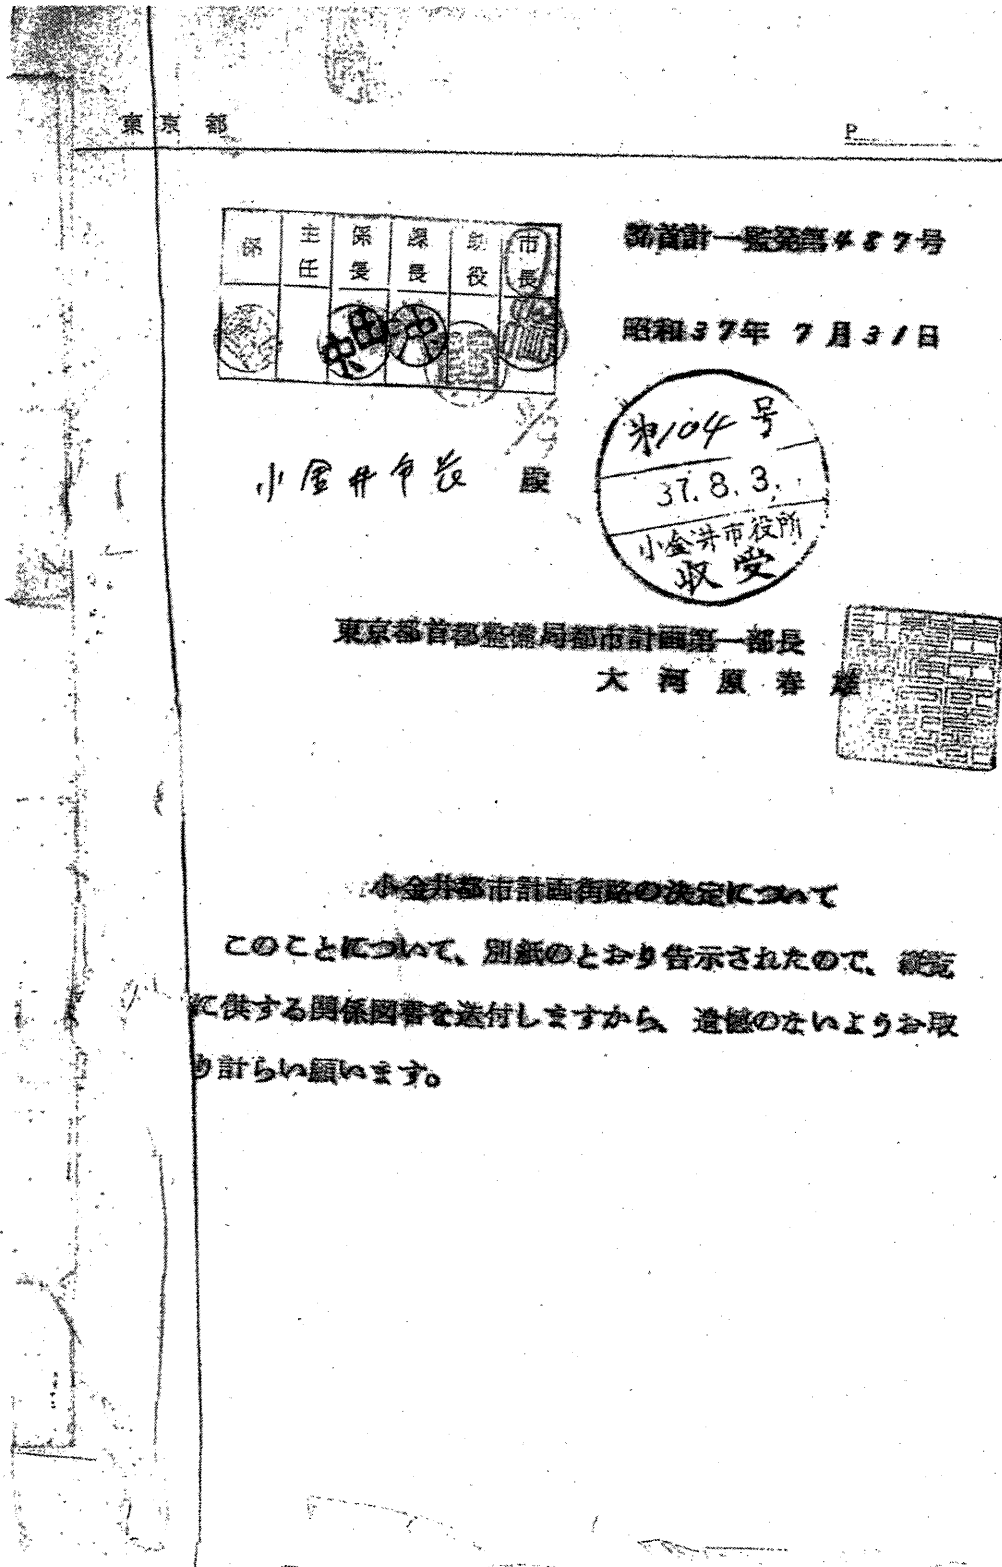 東京都
P
都首計一監発第487号
昭和37年7月31日
係 主任 係長 課長 助役 市長
田中
中
小金井市長 殿
第104号
37.8.3.
小金井市役所
収受
東京都首都整備局都市計画第一部長
大河原春雄
小金井都市計画街路の決定について
このことについて、別紙のとおり告示されたので、縦覧
に供する関係図書を送付しますから、遺憾のないようお取
り計らい願います。